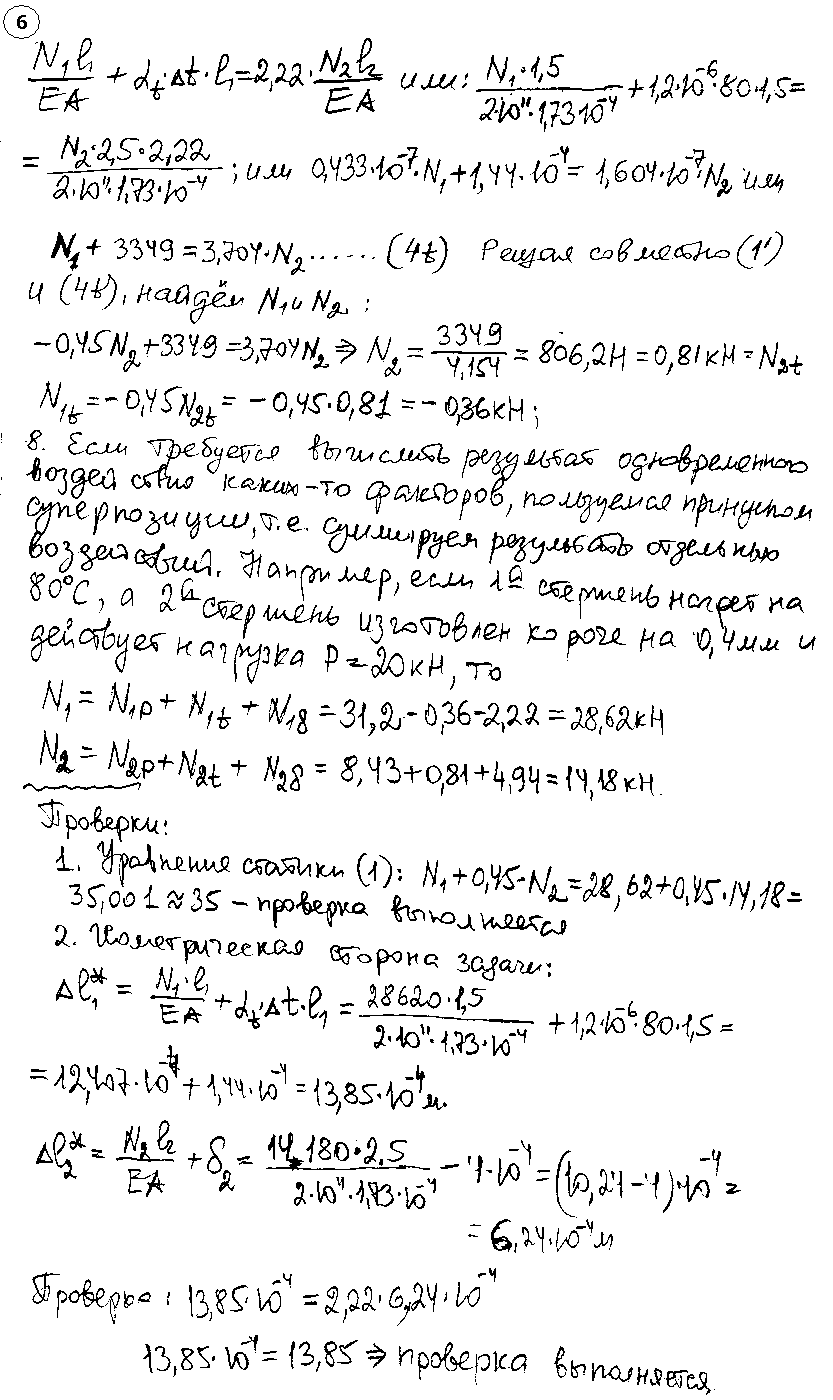 6
N₁l₁/EA + α_t·Δt·l₁ = 2,22·N₂l₂/EA или: N₁·1,5/(2·10¹¹·1,73·10⁻⁴) + 1,2·10⁻⁶·80·1,5 =
= N₂·2,5·2,22/(2·10¹¹·1,73·10⁻⁴); или 0,433·10⁻⁷·N₁ + 1,44·10⁻⁴ = 1,604·10⁻⁷N₂ или
N₁ + 3349 = 3,704·N₂ ...... (4t) Решая совместно (1')
и (4t), найдём N₁ и N₂:
-0,45N₂ + 3349 = 3,704N₂ ⇒ N₂ = 3349/4,154 = 806,2Н = 0,81кН = N₂t
N₁t = -0,45N₂t = -0,45·0,81 = -0,36кН;
8. Если требуется вычислить результат одновременного
воздействия каких-то факторов, пользуемся принципом
суперпозиции, т.е. суммируем результаты отдельных
воздействий. Например, если 1й стержень нагрет на
80°С, а 2й стержень изготовлен короче на 0,4мм и
действует нагрузка P = 20кН, то
N₁ = N₁p + N₁t + N₁δ = 31,2 - 0,36 - 2,22 = 28,62кН
N₂ = N₂p + N₂t + N₂δ = 8,43 + 0,81 + 4,94 = 14,18кН.
Проверки:
1. Уравнение статики (1): N₁ + 0,45·N₂ = 28,62 + 0,45·14,18 =
35,001 ≈ 35 – проверка выполняется
2. Геометрическая сторона задачи:
Δl₁* = N₁·l₁/EA + α_t·Δt·l₁ = 28620·1,5/(2·10¹¹·1,73·10⁻⁴) + 1,2·10⁻⁶·80·1,5 =
= 12,407·10⁻⁴ + 1,44·10⁻⁴ = 13,85·10⁻⁴м.
Δl₂* = N₂l₂/EA + δ₂ = 14180·2,5/(2·10¹¹·1,73·10⁻⁴) - 4·10⁻⁴ = (10,24 - 4)·10⁻⁴ =
= 6,24·10⁻⁴м
Проверка: 13,85·10⁻⁴ = 2,22·6,24·10⁻⁴
13,85·10⁻⁴ = 13,85 ⇒ проверка выполняется.